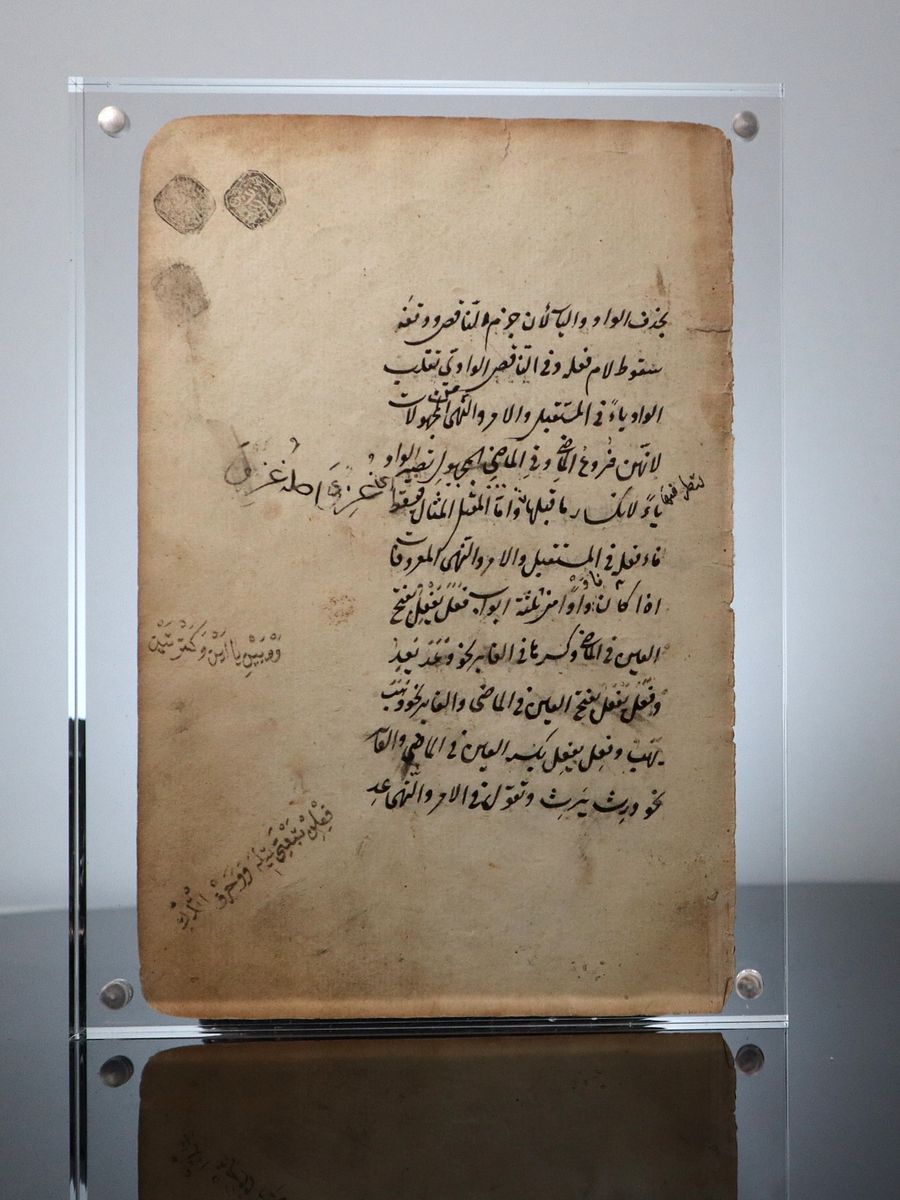 بحذف الواو والياء لأن جزم الناقص ووقفه
سقوط لام فعله وفي الناقص الواوي تقلب
الواو ياءً في المستقبل والامر والنهى المجهولات
لانهن فروع الماضي وفي الماضي المجهول تصير الواو
ياءً لانكسار ما قبلها واما المعتل المثال فيسقط
فاء فعله في المستقبل والامر والنهى المعروفات
اذا كان واوًا من ثلثة ابواب فَعَلَ يَفْعِلُ بفتح
العين في الماضي وكسرها في الغابر نحو وَعَدَ يَعِدُ
وفَعَلَ يَفْعَلُ بفتح العين في الماضي والغابر نحو وَهَبَ
يهَبُ وفعِل يفعِل بكسر العين في الماضي والغابر
نحو ورِث يَرِث وتقول في الامر والنهى عِد
غُزِيَ اصله غُزِوَ